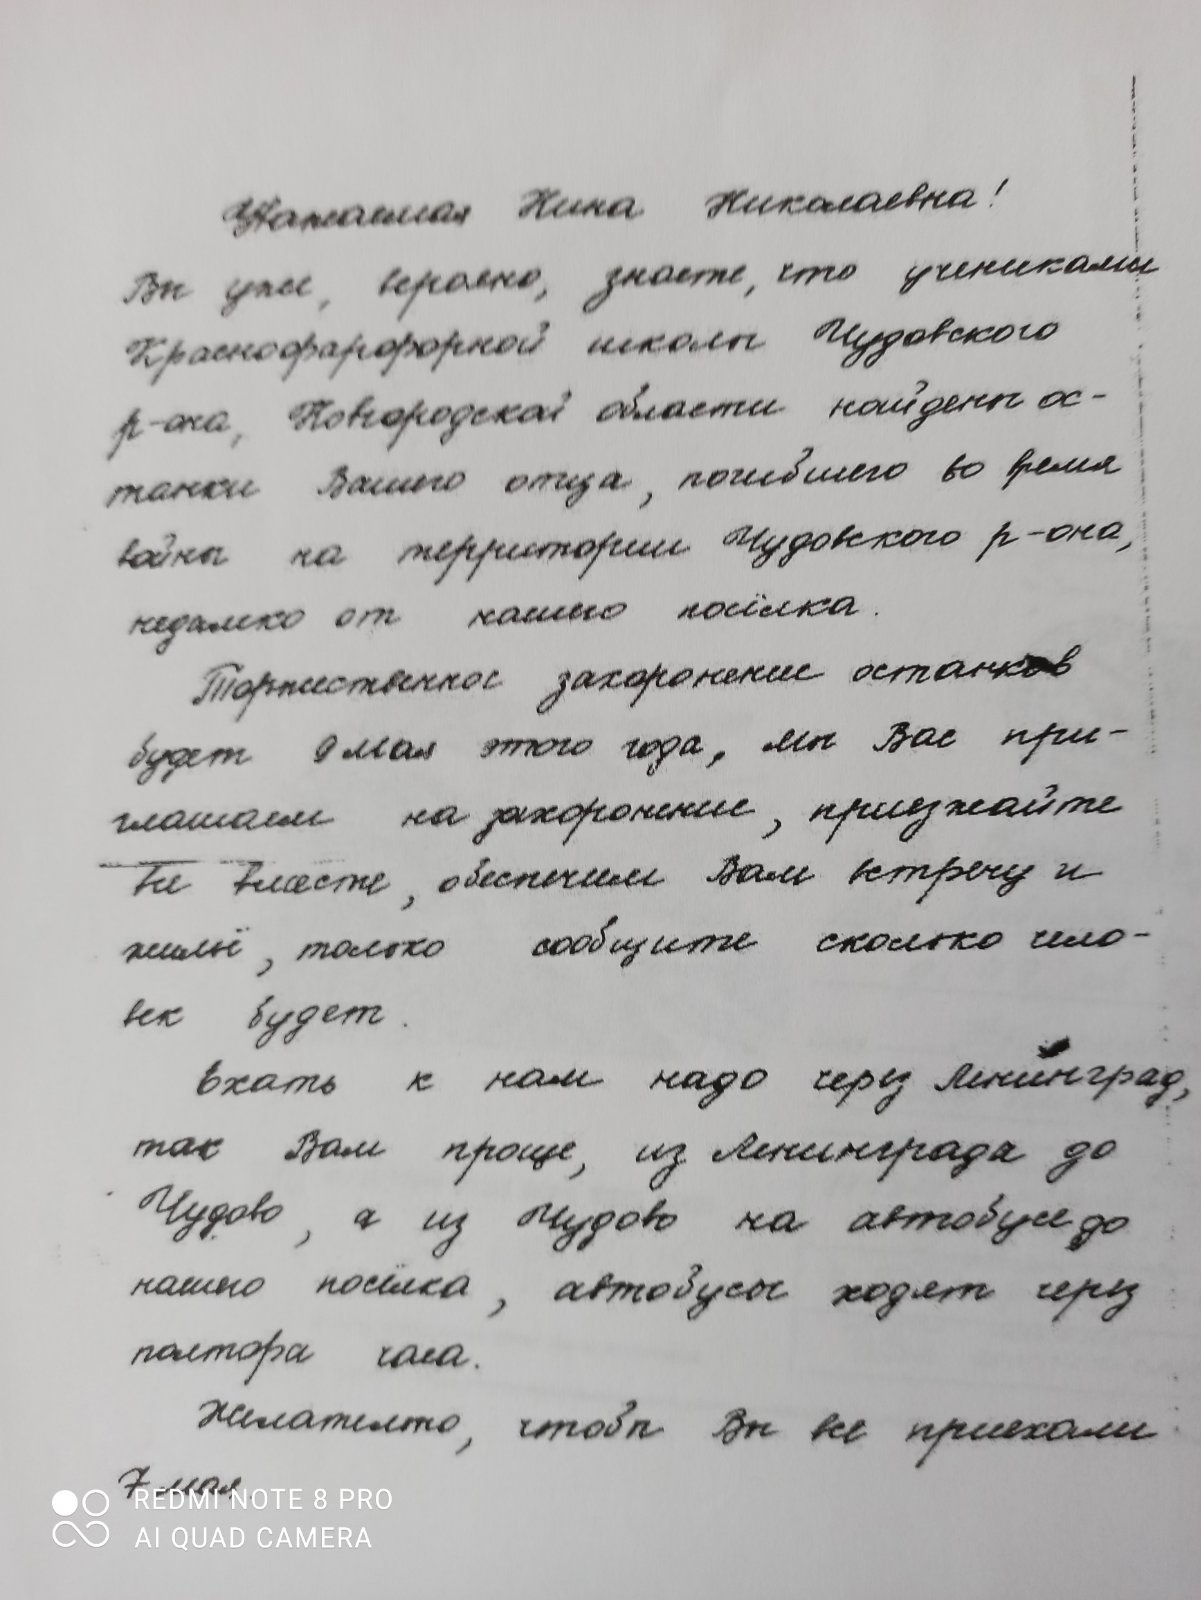 Уважаемая Нина Николаевна!
Вы уже, вероятно, знаете, что учениками
Краснофарфорной школы Чудовского
р-она, Новгородской области найдены ос-
танки Вашего отца, погибшего во время
войны на территории Чудовского р-она,
недалеко от нашего посёлка.
Торжественное захоронение останков
будет 9 мая этого года, мы Вас при-
глашаем на захоронение, приезжайте
все вместе, обеспечим Вам встречу и
жильё, только сообщите сколько чело-
век будет.
Ехать к нам надо через Ленинград,
так Вам проще, из Ленинграда до
Чудово, а из Чудово на автобусе до
нашего посёлка, автобусы ходят через
полтора часа.
Желательно, чтобы Вы все приехали
7 мая
REDMI NOTE 8 PRO
AI QUAD CAMERA